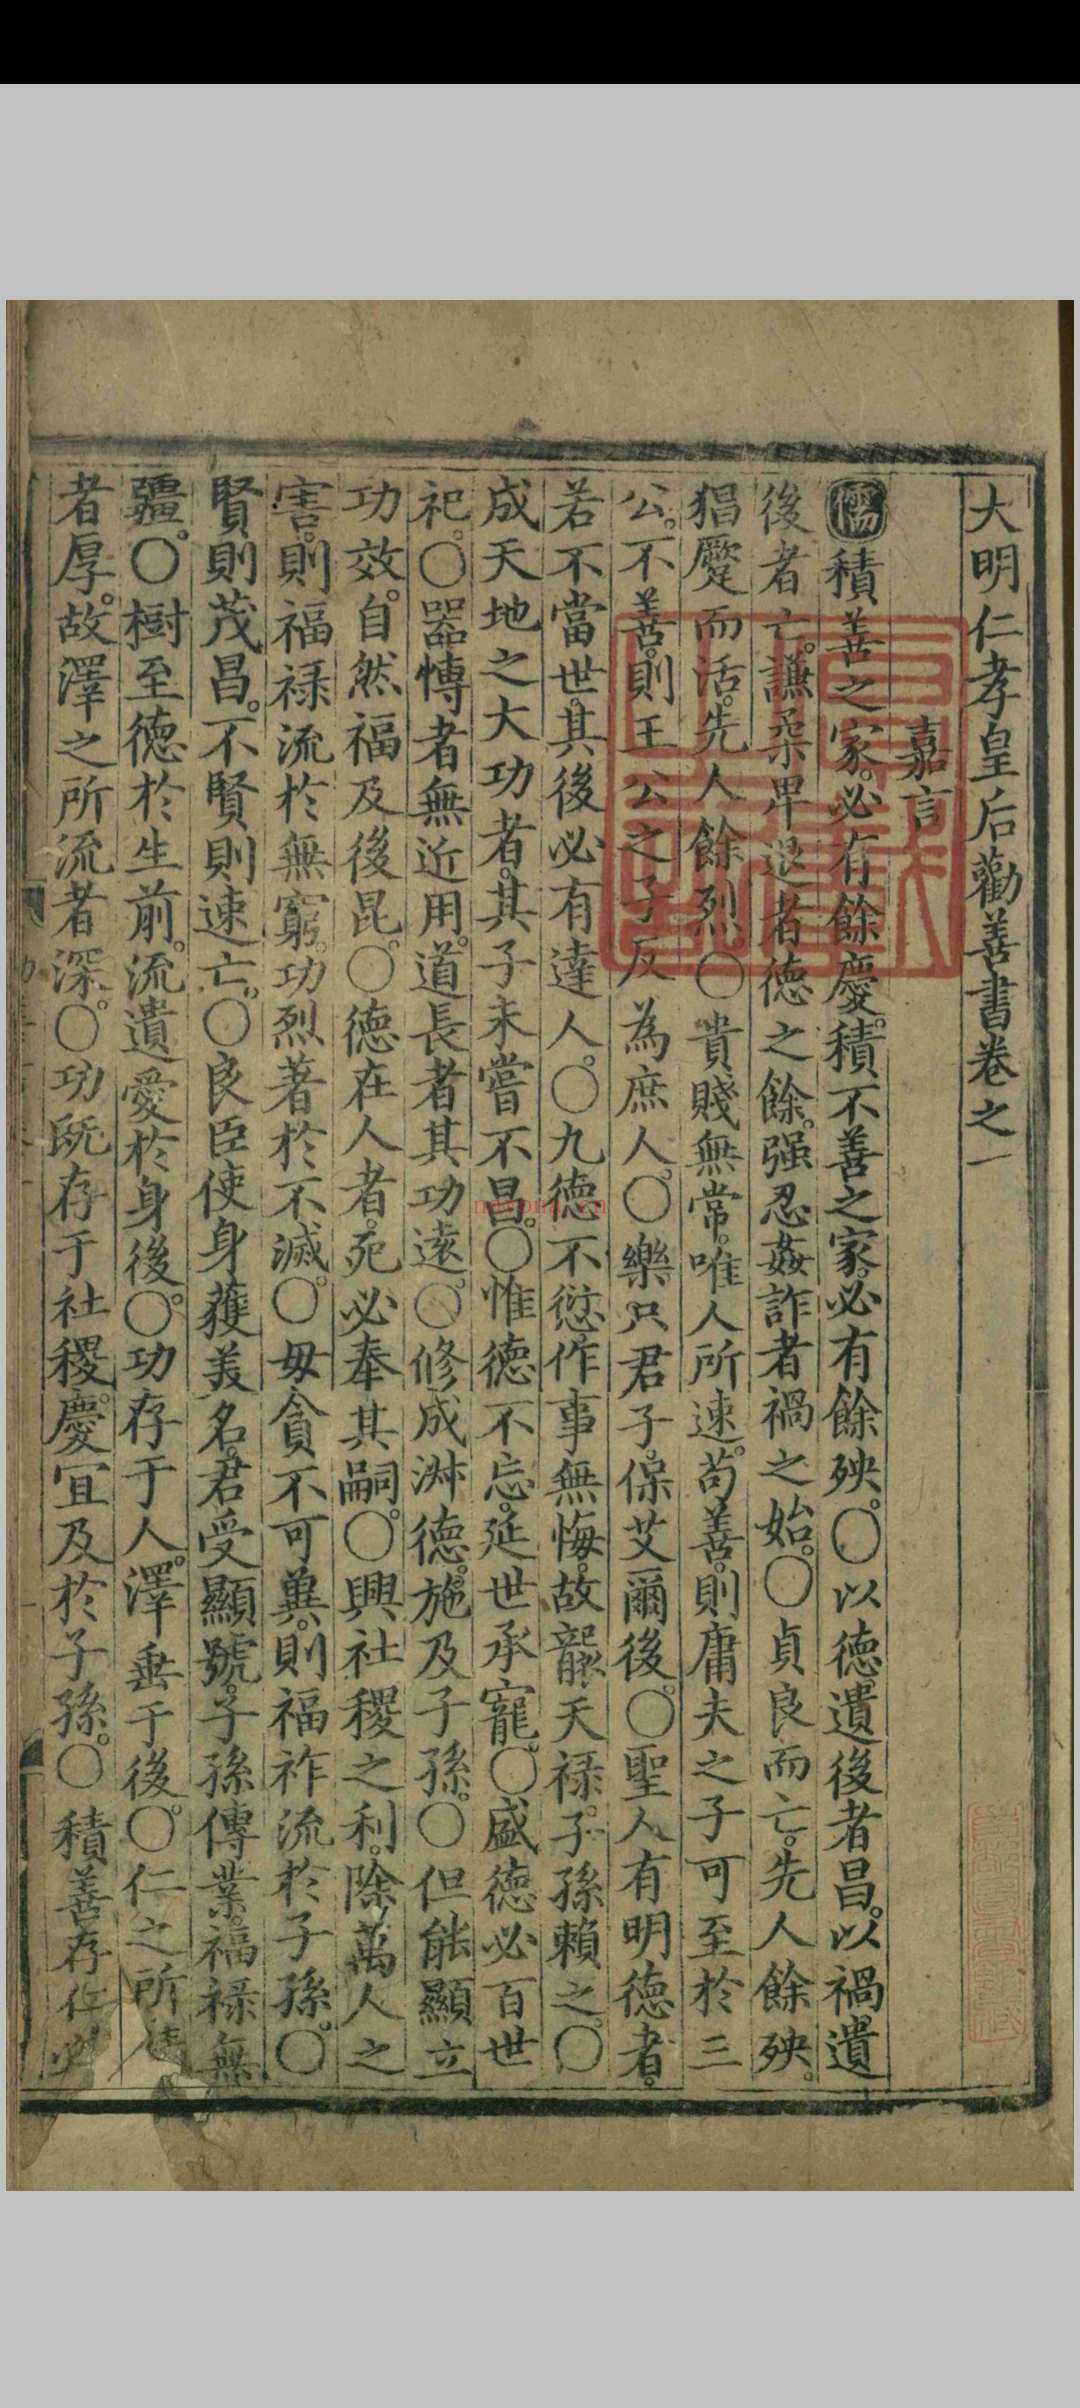 大明仁孝皇后勸善書卷之一
嘉言
儒積善之家。必有餘慶。積不善之家。必有餘殃。○以德遺後者昌。以禍遺
後者亡。謙柔卑退者德之餘。强忍姦詐者禍之始。○貞良而亡。先人餘殃。
猖蹷而活。先人餘烈。○貴賤無常。唯人所速。苟善。則庸夫之子可至於三
公。不善。則王公之子反為庶人。○樂只君子。保艾爾後。○聖人有明德者。
若不當世。其後必有達人。○九德不愆。作事無悔。故襲天祿。子孫賴之。○
成天地之大功者。其子未嘗不昌。○惟德不忘。延世承寵。○盛德必百世
祀。○器博者無近用。道長者其功遠。○修成淋德。施及子孫。○但能顯立
功效。自然福及後昆。○德在人者。死必奉其嗣。○興社稷之利。除萬人之
害。則福祿流於無窮。功烈著於不滅。○毋貪不可兾。則福祚流於子孫。○
賢則茂昌。不賢則速亡。○良臣使身獲美名。君受顯號。子孫傳業。福祿無
疆。○樹至德於生前。流遺愛於身後。○功存于人。澤垂于後。○仁之所
者厚。故澤之所流者深。○功既存于社稷。慶宜及於子孫。○積善存仁必
nayona.cn